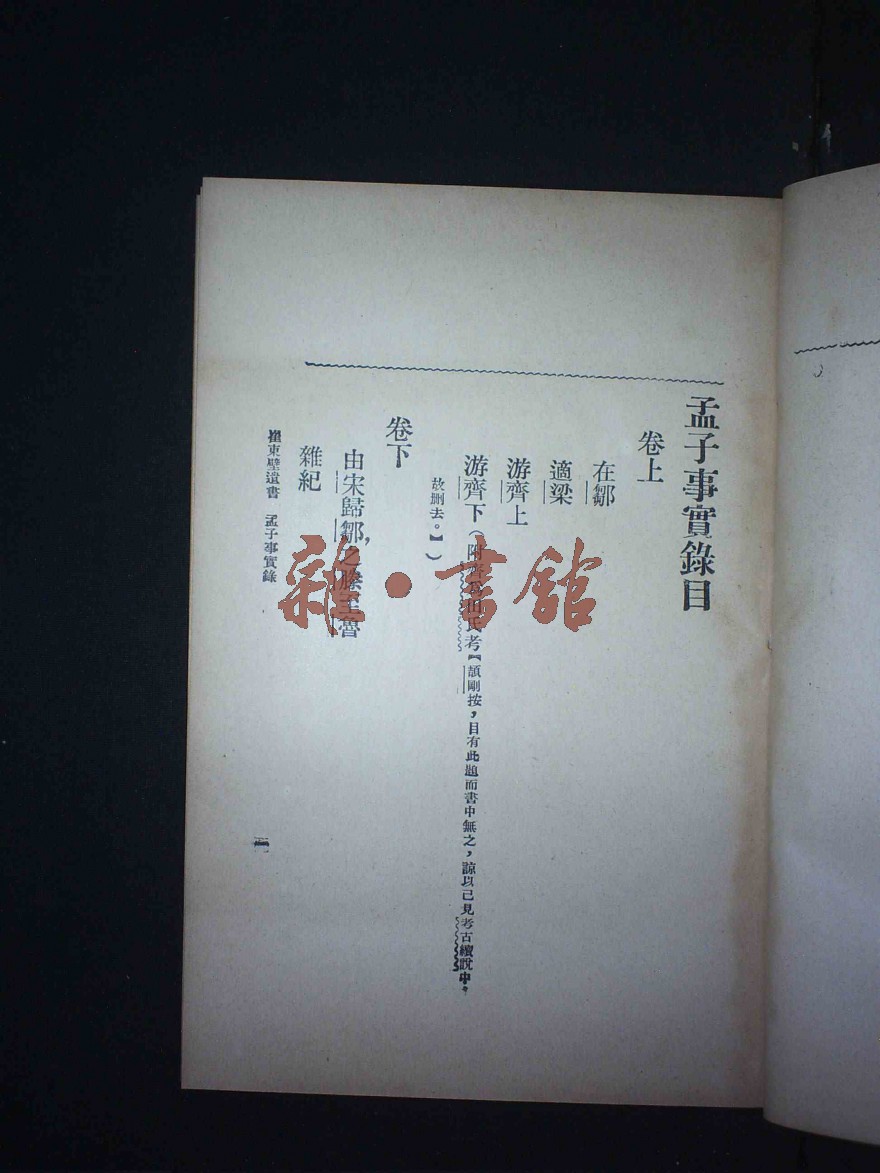 孟子事實錄目
卷上
在鄒
適梁
游齊上
游齊下（附齊爲田氏考【頡剛按，目有此題而書中無之，諒以已見考古續說中，
故删去。】）
卷下
由宋歸鄒，之滕至魯
雜紀
崔東壁遺書 孟子事實錄
雜·書館